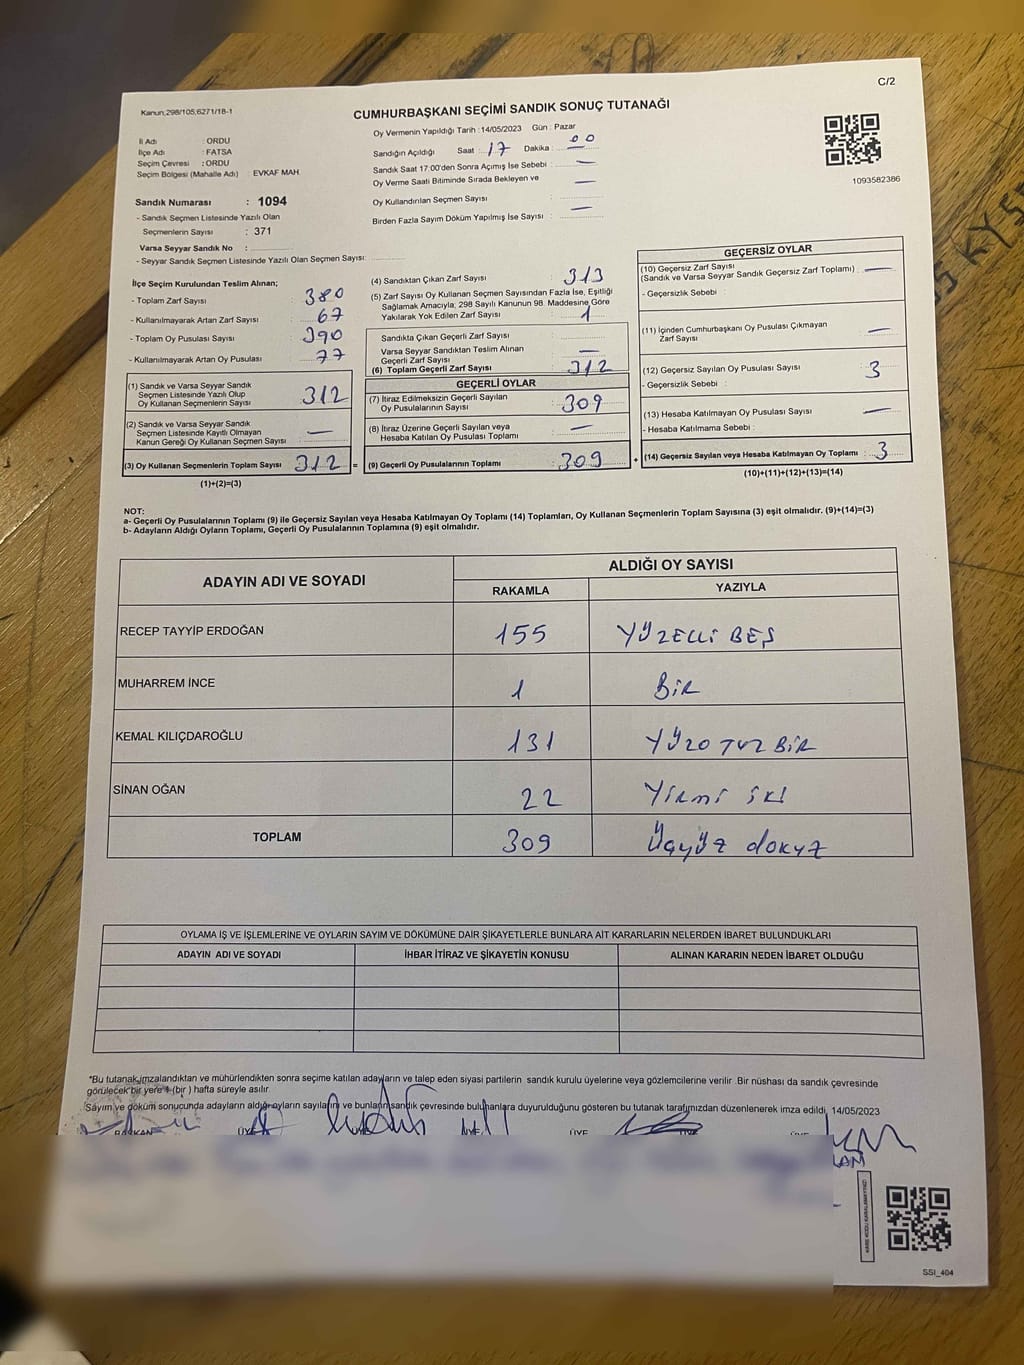 C/2
Kanun;298/105,6271/18-1
CUMHURBAŞKANI SEÇİMİ SANDIK SONUÇ TUTANAĞI
İl Adı : ORDU
İlçe Adı : FATSA
Seçim Çevresi : ORDU
Seçim Bölgesi (Mahalle Adı) EVKAF MAH.
Sandık Numarası : 1094
- Sandık Seçmen Listesinde Yazılı Olan
Seçmenlerin Sayısı : 371
Varsa Seyyar Sandık No :
- Seyyar Sandık Seçmen Listesinde Yazılı Olan Seçmen Sayısı:
Oy Vermenin Yapıldığı Tarih : 14/05/2023 Gün : Pazar
Sandığın Açıldığı Saat : 17 Dakika : 00
Sandık Saat 17:00'den Sonra Açımış İse Sebebi : —
Oy Verme Saati Bitiminde Sırada Bekleyen ve
Oy Kullandırılan Seçmen Sayısı : —
Birden Fazla Sayım Döküm Yapılmış İse Sayısı : —
1093582386
İlçe Seçim Kurulundan Teslim Alınan;
- Toplam Zarf Sayısı : 380
- Kullanılmayarak Artan Zarf Sayısı : 67
- Toplam Oy Pusulası Sayısı : 390
- Kullanılmayarak Artan Oy Pusulası : 77
(1) Sandık ve Varsa Seyyar Sandık
Seçmen Listesinde Yazılı Olup
Oy Kullanan Seçmenlerin Sayısı : 312
(2) Sandık ve Varsa Seyyar Sandık
Seçmen Listesinde Kayıtlı Olmayan
Kanun Gereği Oy Kullanan Seçmen Sayısı : —
(3) Oy Kullanan Seçmenlerin Toplam Sayısı 312 =
(1)+(2)=(3)
(4) Sandıktan Çıkan Zarf Sayısı : 313
(5) Zarf Sayısı Oy Kullanan Seçmen Sayısından Fazla İse, Eşitliği
Sağlamak Amacıyla; 298 Sayılı Kanunun 98. Maddesine Göre
Yakılarak Yok Edilen Zarf Sayısı : 1
Sandıkta Çıkan Geçerli Zarf Sayısı :
Varsa Seyyar Sandıktan Teslim Alınan
Geçerli Zarf Sayısı : —
(6) Toplam Geçerli Zarf Sayısı : 312
GEÇERLİ OYLAR
(7) İtiraz Edilmeksizin Geçerli Sayılan
Oy Pusulalarının Sayısı : 309
(8) İtiraz Üzerine Geçerli Sayılan veya
Hesaba Katılan Oy Pusulası Toplamı : —
(9) Geçerli Oy Pusulalarının Toplamı : 309 +
GEÇERSİZ OYLAR
(10) Geçersiz Zarf Sayısı
(Sandık ve Varsa Seyyar Sandık Geçersiz Zarf Toplamı) : —
- Geçersizlik Sebebi :
(11) İçinden Cumhurbaşkanı Oy Pusulası Çıkmayan
Zarf Sayısı : —
(12) Geçersiz Sayılan Oy Pusulası Sayısı : 3
- Geçersizlik Sebebi :
(13) Hesaba Katılmayan Oy Pusulası Sayısı : —
- Hesaba Katılmama Sebebi :
(14) Geçersiz Sayılan veya Hesaba Katılmayan Oy Toplamı : 3
(10)+(11)+(12)+(13)=(14)
NOT:
a- Geçerli Oy Pusulalarının Toplamı (9) ile Geçersiz Sayılan veya Hesaba Katılmayan Oy Toplamı (14) Toplamları, Oy Kullanan Seçmenlerin Toplam Sayısına (3) eşit olmalıdır. (9)+(14)=(3)
b- Adayların Aldığı Oyların Toplamı, Geçerli Oy Pusulalarının Toplamına (9) eşit olmalıdır.
ADAYIN ADI VE SOYADI ALDIĞI OY SAYISI
RAKAMLA YAZIYLA
RECEP TAYYİP ERDOĞAN 155 YÜZELLİ BEŞ
MUHARREM İNCE 1 BİR
KEMAL KILIÇDAROĞLU 131 YÜZOTUZ BİR
SİNAN OĞAN 22 YİRMİ İKİ
TOPLAM 309 Üçyüz dokuz
OYLAMA İŞ VE İŞLEMLERİNE VE OYLARIN SAYIM VE DÖKÜMÜNE DAİR ŞİKAYETLERLE BUNLARA AİT KARARLARIN NELERDEN İBARET BULUNDUKLARI
ADAYIN ADI VE SOYADI İHBAR İTİRAZ VE ŞİKAYETİN KONUSU ALINAN KARARIN NEDEN İBARET OLDUĞU
*Bu tutanak imzalandıktan ve mühürlendikten sonra seçime katılan adayların ve talep eden siyasi partilerin sandık kurulu üyelerine veya gözlemcilerine verilir .Bir nüshası da sandık çevresinde
görülecek bir yere 1 (bir ) hafta süreyle asılır.
Sayım ve döküm sonucunda adayların aldığı oyların sayılarını ve bunların sandık çevresinde bulunanlara duyurulduğunu gösteren bu tutanak tarafımızdan düzenlenerek imza edildi. 14/05/2023
BAŞKAN ÜYE ÜYE ÜYE
SSI_404